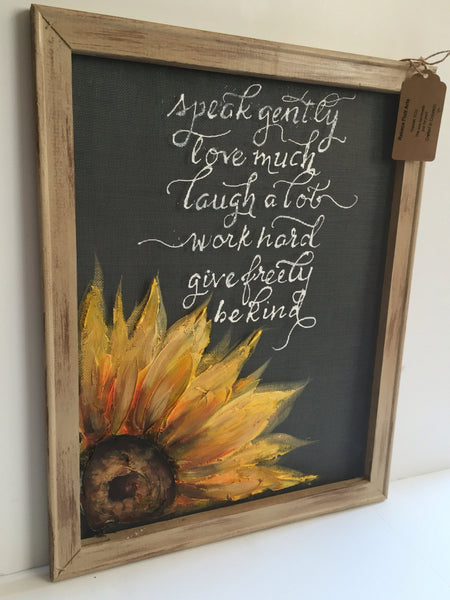 speak gently
love much
laugh a lot
work hard
give freely
be kind